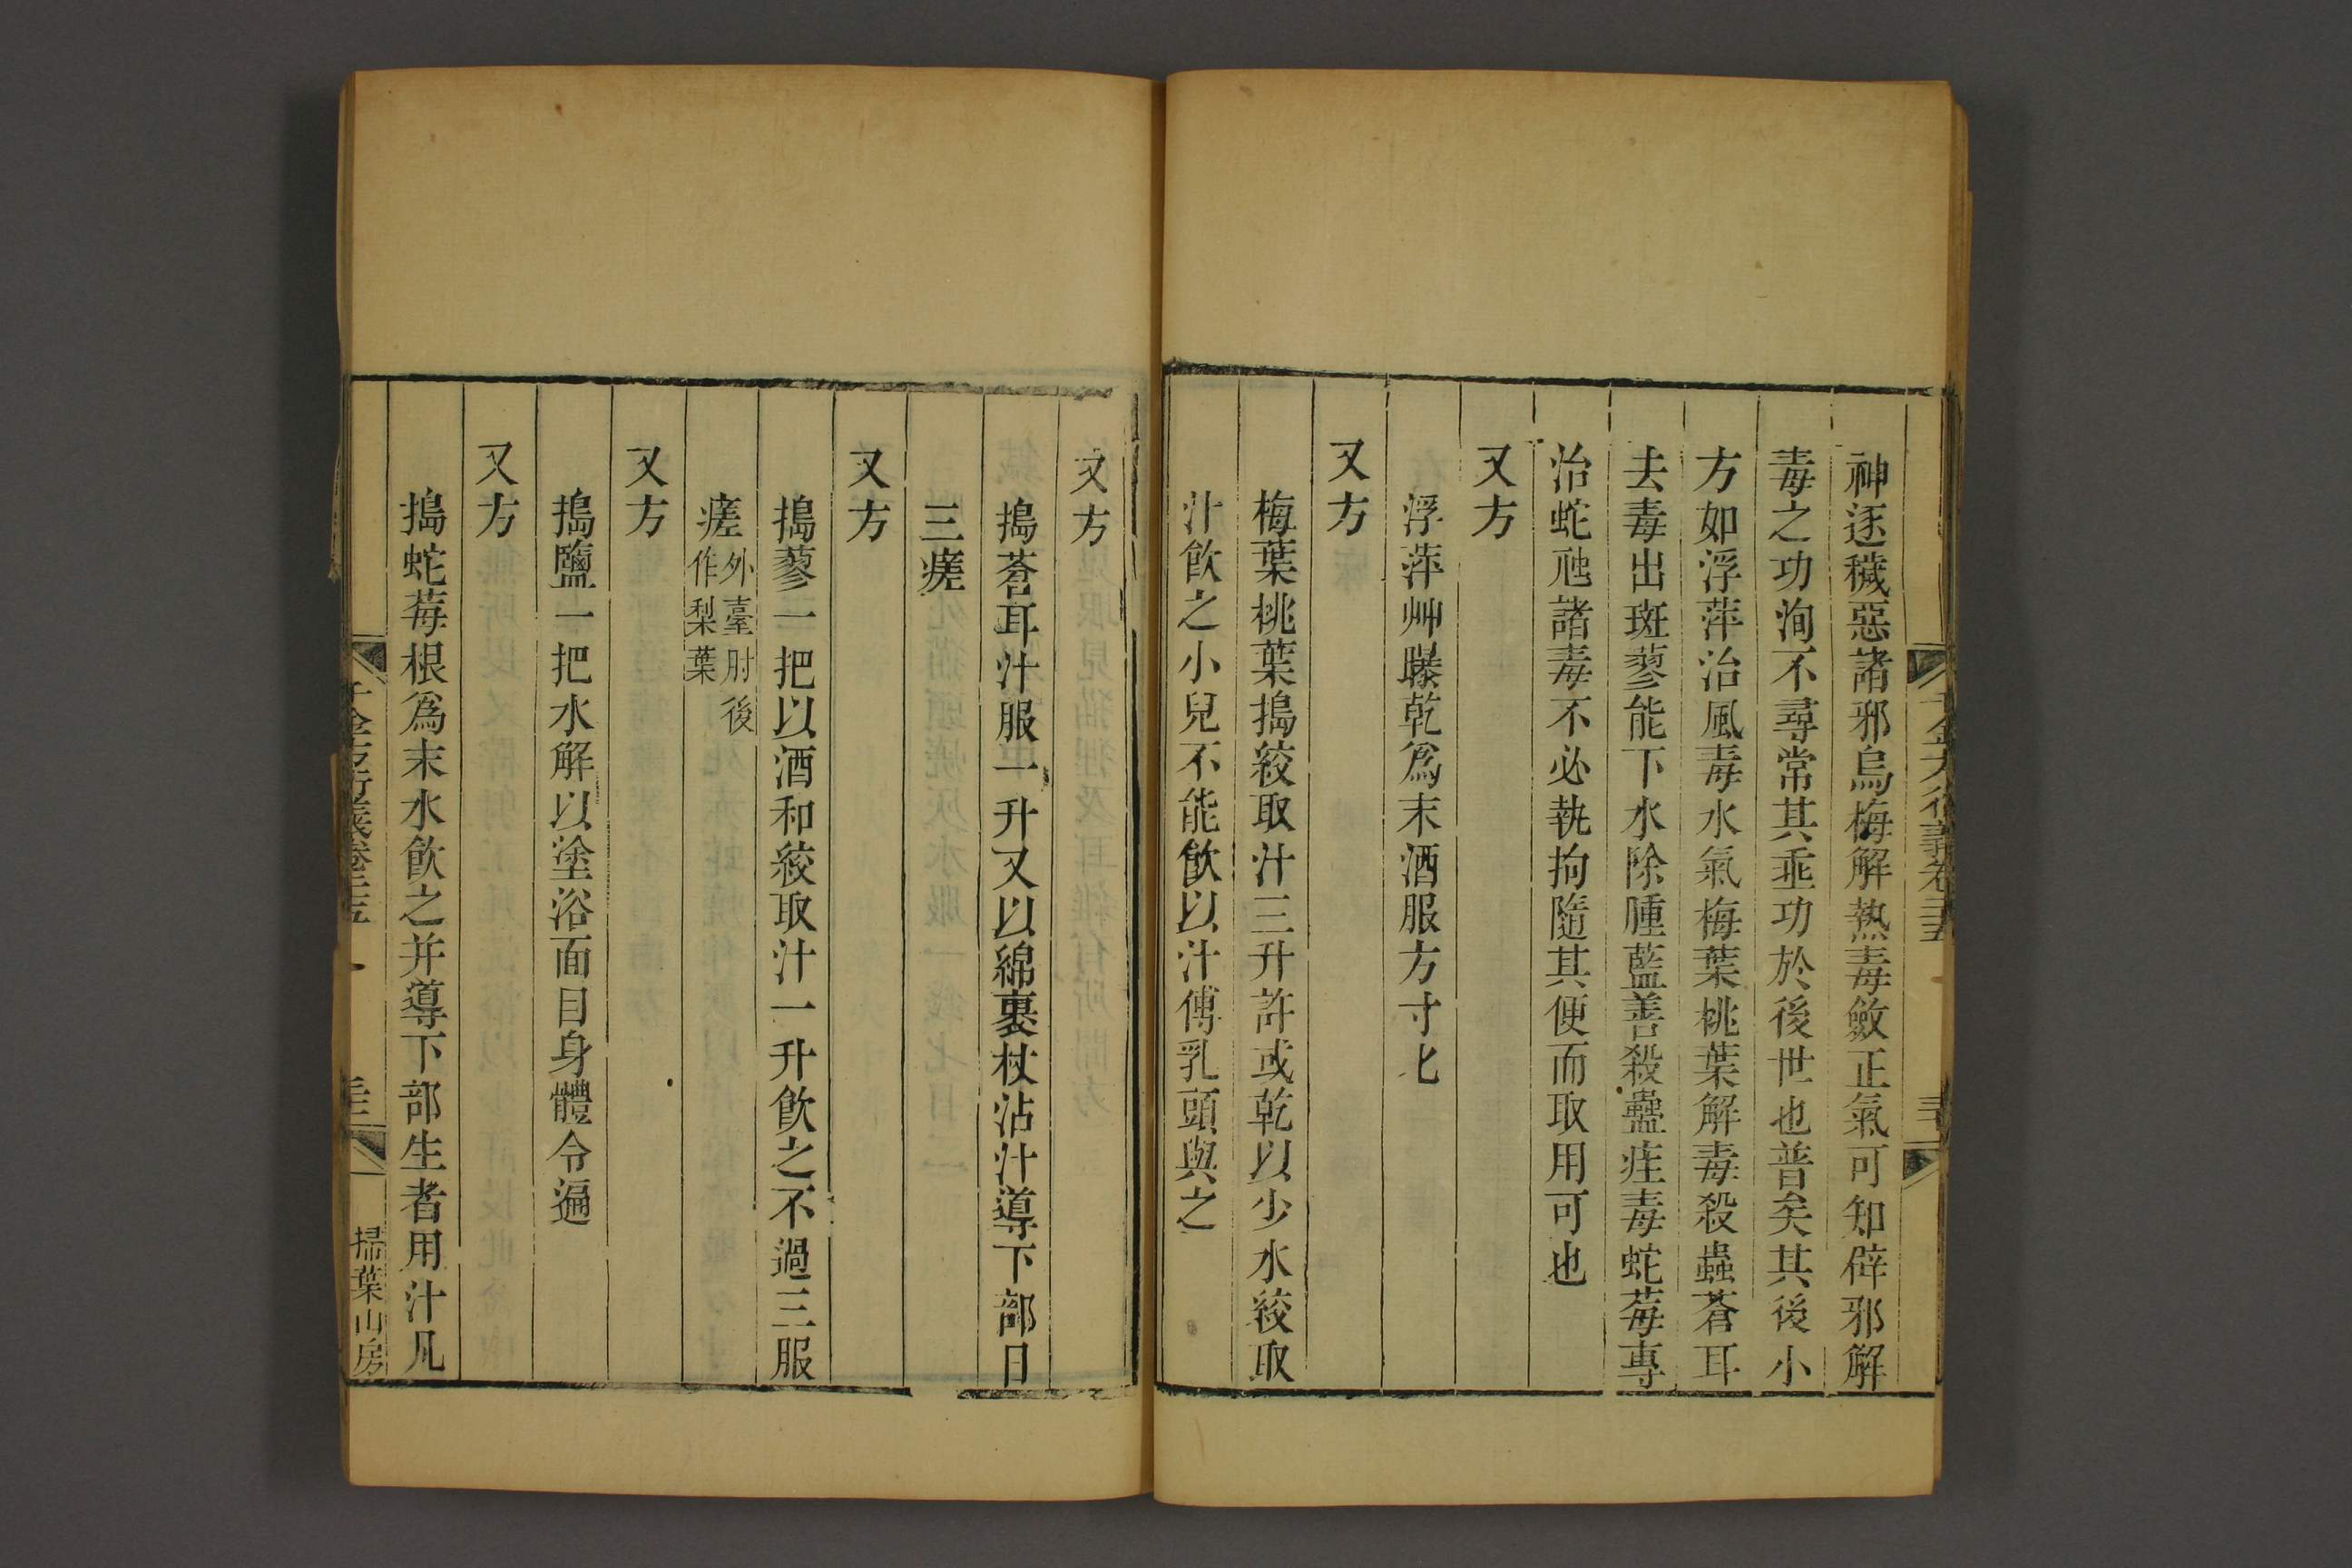 千金方衍義卷二十五
神逐穢惡諸邪烏梅解熱毒斂正氣可知辟邪解
毒之功洵不尋常其垂功於後世也普矣其後小
方如浮萍治風毒水氣梅葉桃葉解毒殺蟲蒼耳
去毒出斑蓼能下水除腫藍善殺蠱疰毒蛇莓專
治蛇虺諸毒不必執拘隨其便而取用可也
又方
浮萍艸曝乾爲末酒服方寸匕
又方
梅葉桃葉搗絞取汁三升許或乾以少水絞取
汁飮之小兒不能飮以汁傅乳頭與之
又方
搗蒼耳汁服一升又以綿裹杖沾汁導下部日
三瘥
又方
搗蓼一把以酒和絞取汁一升飮之不過三服
瘥外臺肘後
作梨葉
又方
搗鹽一把水解以塗浴面目身體令遍
又方
搗蛇莓根爲末水飮之并導下部生者用汁凡
千金方衍義卷二十五
掃葉山房